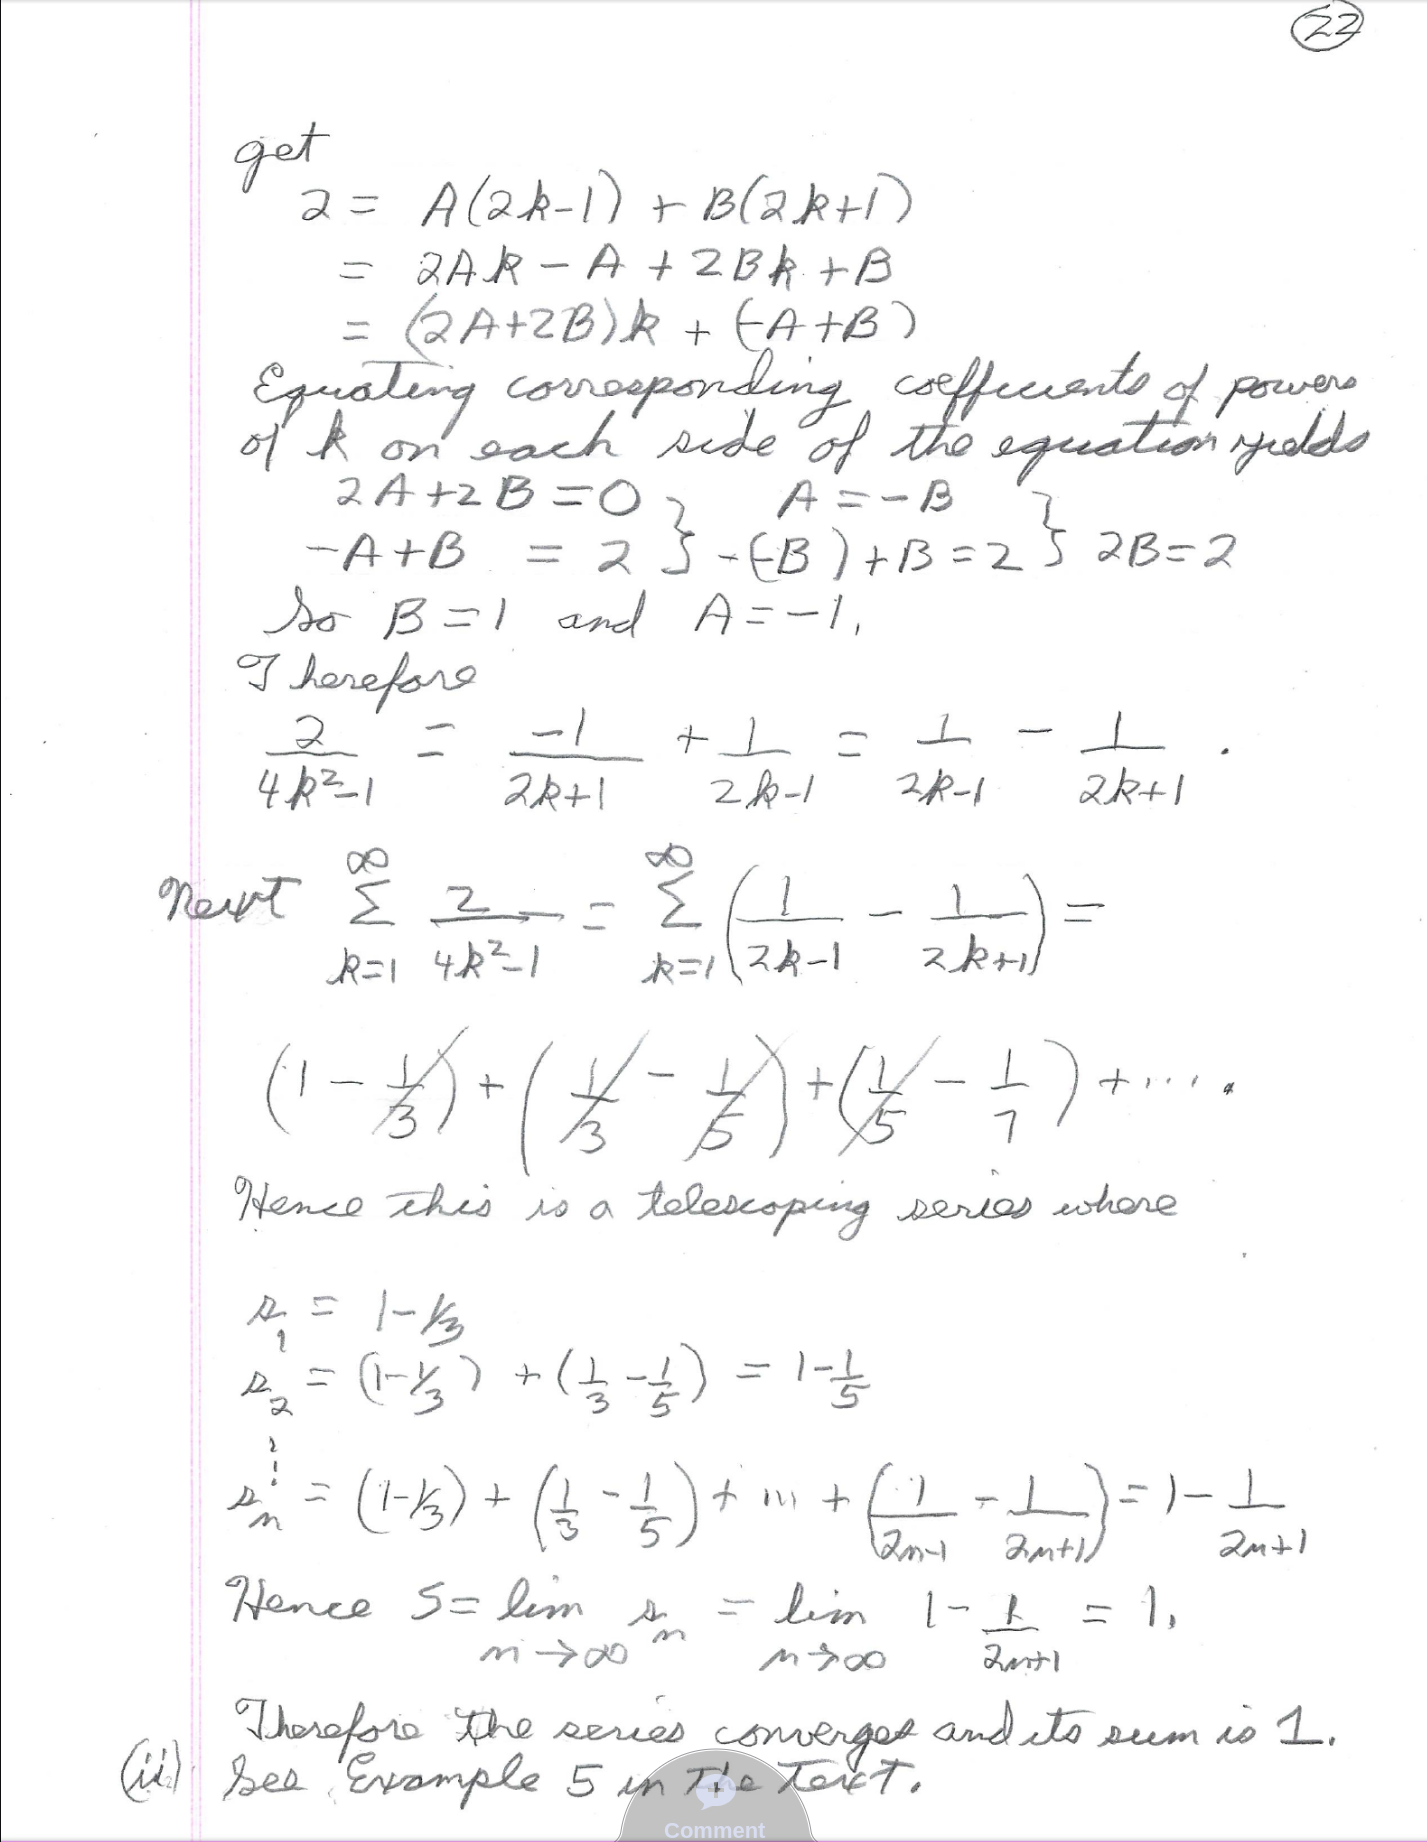 22
get
2 = A(2k-1) + B(2k+1)
= 2Ak - A + 2Bk + B
= (2A+2B)k + (-A+B)
Equating corresponding coefficients of powers
of k on each side of the equation yields
2A+2B=0 } A=-B }
-A+B = 2 } -(-B)+B=2 } 2B=2
So B=1 and A=-1.
Therefore
2/(4k²-1) = -1/(2k+1) + 1/(2k-1) = 1/(2k-1) - 1/(2k+1).
Next ∞∑k=1 2/(4k²-1) = ∞∑k=1 (1/(2k-1) - 1/(2k+1)) =
(1 - 1/3) + (1/3 - 1/5) + (1/5 - 1/7) + ....
Hence this is a telescoping series where
s₁ = 1-1/3
s₂ = (1-1/3) + (1/3-1/5) = 1-1/5
⋮
sₙ = (1-1/3) + (1/3-1/5) + ... + (1/(2n-1) - 1/(2n+1)) = 1 - 1/(2n+1)
Hence S = lim n→∞ sₙ = lim n→∞ 1 - 1/(2n+1) = 1.
Therefore the series converges and its sum is 1.
(ii) See Example 5 in the Text.
Comment